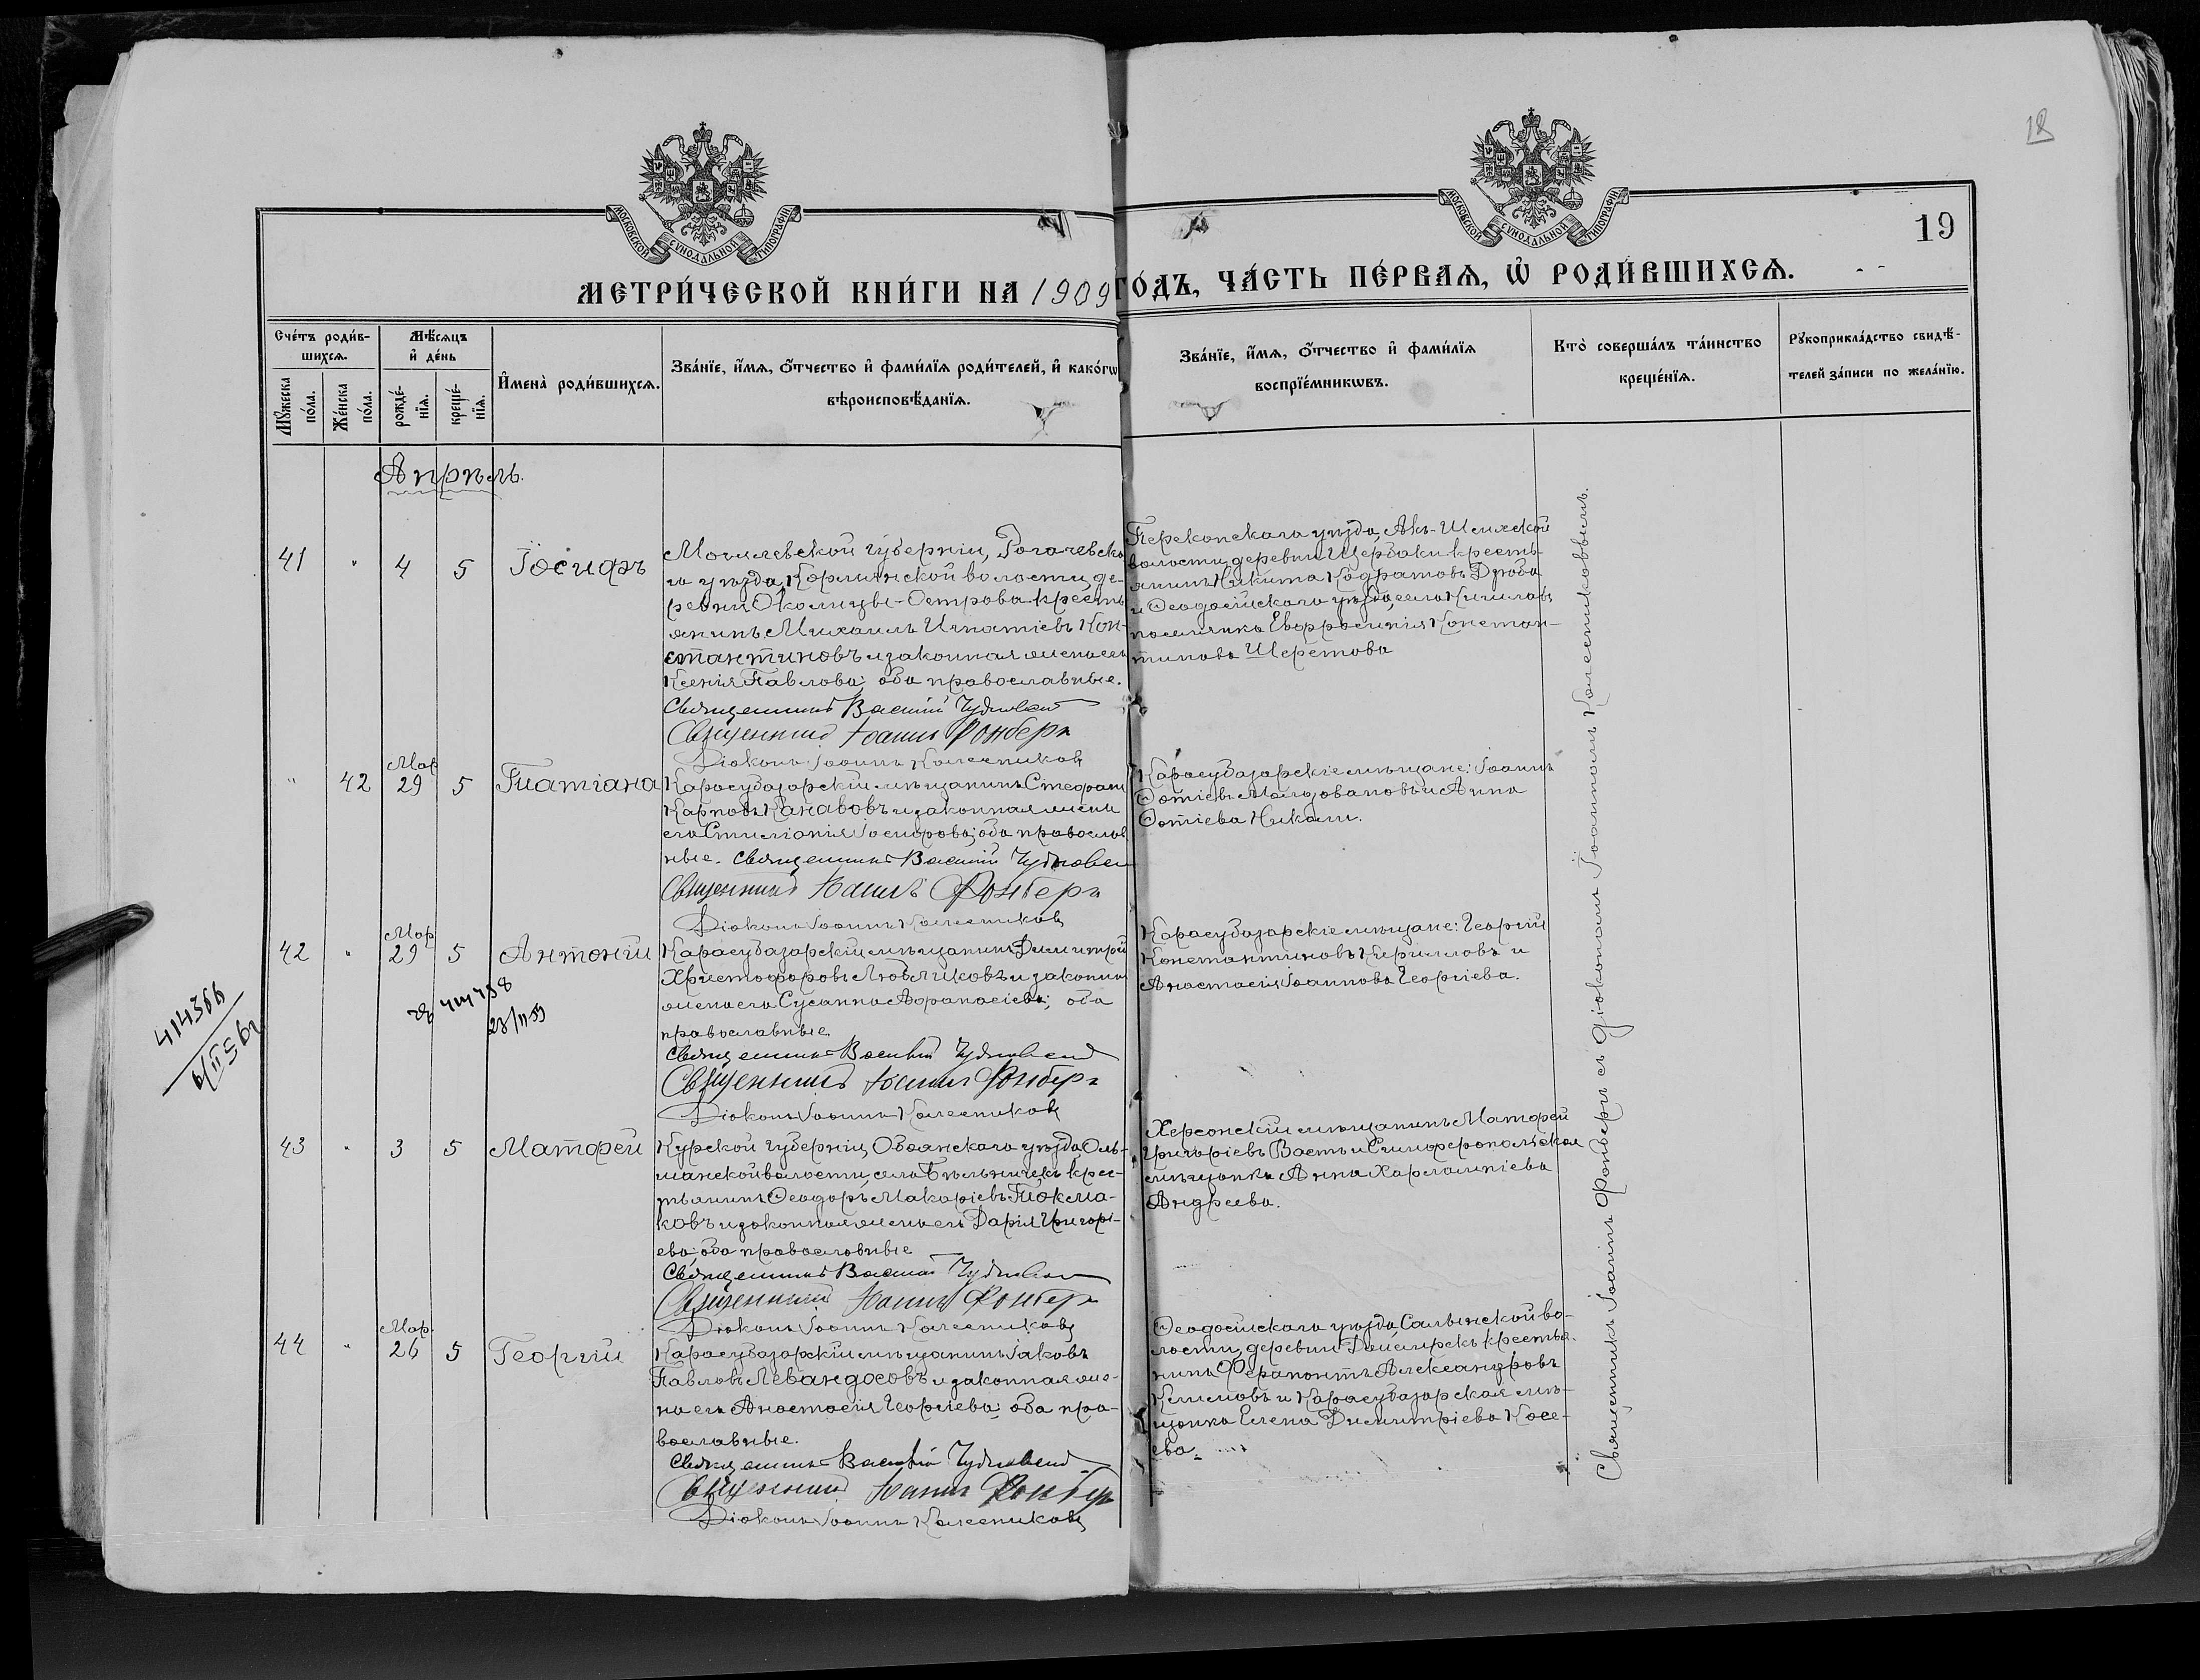 18
19
МОСКОВСКОЙ СѴНОДАЛЬНОЙ ТИПОГРАФІИ
МОСКОВСКОЙ СѴНОДАЛЬНОЙ ТИПОГРАФІИ
МЕТРИ́ЧЕСКОЙ КНИ́ГИ НА 1909 ГО́ДЪ, ЧА́СТЬ ПЕ́РВАѦ, Ѡ҆ РОДИ́ВШИХСѦ.
Сче́тъ роди́в-
шихсѧ.
Мꙋ́жеска по́ла.
Же́нска по́ла.
Мѣ́сѧцъ
и҆ де́нь
рожде́-
нїѧ.
креще́-
нїѧ.
И҆мена̀ роди́вшихсѧ.
Зва́нїе, и҆́мѧ, ѻ҆́тчество и҆ фами́лїѧ роди́телей, и҆ како́гѡ
вѣроисповѣ́данїѧ.
Зва́нїе, и҆́мѧ, ѻ҆́тчество и҆ фами́лїѧ
воспрїе́мникѡвъ.
Кто̀ соверша́лъ та́инство
креще́нїѧ.
Рꙋкоприкла́дство свидѣ́-
телей за́писи по жела́нїю.
Апрѣль.
41 " 4 5 Іосифъ
Могилевской губерніи, Рогачевска-
го уѣзда, Кормянской волости, де-
ревни Околицы-Острова крестья-
янинъ Михаилъ Игнатіевъ Кон-
стантиновъ и законная жена его
Ксенія Павлова; оба православные.
Священникъ Василій Чудновскій
Священникъ Іоаннъ Фонберъ
Діаконъ Іоаннъ Колесниковъ
Перекопскаго уѣзда, Акъ-Шеихской
волости, деревни Щербаки кресть-
янинъ Никита Кодратовъ Дзюба
и Ѳеодосійскаго уѣзда, села
поселянка Евфросинія Констан-
тинова Шереметова
" 42 Мар. 29 5 Татіана
Карасубазарскій мѣщанинъ Стефанъ
Карповъ Канавовъ и законная жена
его Стиліанія Іосифова; оба православ
ные. Священникъ Василій Чудновскій
Священникъ Іоаннъ Фонберъ
Діаконъ Іоаннъ Колесниковъ
Карасубазарскіе мѣщане: Іоаннъ
Ѳотіевъ Молдовановъ и Анна
Ѳотіева Никали.
42 " Мар. 29 5 Антоній
Карасубазарскій мѣщанинъ Димитрій
Христофоровъ и законная
жена его Сусанна Афанасіева; оба
православные
Священникъ Василій Чудновскій
Священникъ Іоаннъ Фонберъ
Діаконъ Іоаннъ Колесниковъ
Карасубазарскіе мѣщане: Георгій
Константиновъ Кирилловъ и
Анастасія Іоаннова Георгіева.
414366
43 " 3 5 Матфей
Курской губерніи, Обоянскаго уѣзда, Оль-
шанской волости, села крес-
тьянинъ Ѳеодоръ Макаріевъ Токма-
ковъ и законная жена его Дарія Григорі-
ева; оба православные
Священникъ Василій Чудновскій
Священникъ Іоаннъ Фонберъ
Діаконъ Іоаннъ Колесниковъ
Херсонскій мѣщанинъ Матфей
Григоріевъ Вастъ и Симферопольская
мѣщанка Анна Харлампіева
Андреева.
44 " Мар. 26 5 Георгій
Карасубазарскій мѣщанинъ Іаковъ
Павловъ Левандосовъ и законная же-
на его Анастасія Георгіева; оба пра-
вославные.
Священникъ Василій Чудновскій
Священникъ Іоаннъ Фонберъ
Діаконъ Іоаннъ Колесниковъ
Ѳеодосійскаго уѣзда, Салынской во-
лости, деревни крестья-
нинъ Ферапонтъ Александровъ
Климовъ и Карасубазарская мѣ-
щанка Елена Димитріева Косе-
ева.
Священникъ Іоаннъ Фонберъ съ діакономъ Іоанномъ Колесниковымъ.